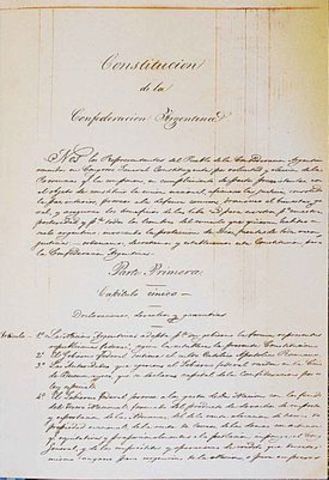 Constitucion
de la
Confederacion Argentina
Nos los Representantes del Pueblo de la Confederacion Argentina
en Congreso General Constituyente por voluntad y eleccion de las
Provincias que la componen, en cumplimiento de pactos
el objeto de constituir la union nacional, afianzar la justicia, consolidar
la paz interior, proveer a la defensa comun, promover el bienestar ge-
neral, y asegurar los beneficios de la libertad para nosotros, para nuestra
posteridad y para todos los hombres del mundo que quieran habitar el
suelo argentino; invocando la proteccion de Dios, fuente de toda razon y
justicia: ordenamos, decretamos y establecemos esta Constitucion para
la Confederacion Argentina.
Parte Primera
Capitulo único
Declaraciones, derechos y garantias
Articulo 1º La Nacion Argentina adopta para su gobierno la forma representativa
republicana federal, segun la establece la presente Constitucion
2º El Gobierno Federal sostiene el culto Catolico Apostolico Romano
3º Las Autoridades que ejercen el Gobierno federal residen en la Ciu-
de Buenos Ayres, que se declara capital de la Confederacion por u-
ley especial
4º El Gobierno Federal provee a los gastos de la Nacion con los fondos
del Tesoro Nacional, formado del producto de derechos de
y esportacion de las Aduanas, del de la venta
propiedad nacional, de la renta de Correos, de las demas contribu-
y proporcionalmente a la poblacion
General, y de los emprestitos y operaciones de credito que
mismo Congreso para urgencias de la Nacion o para empresas